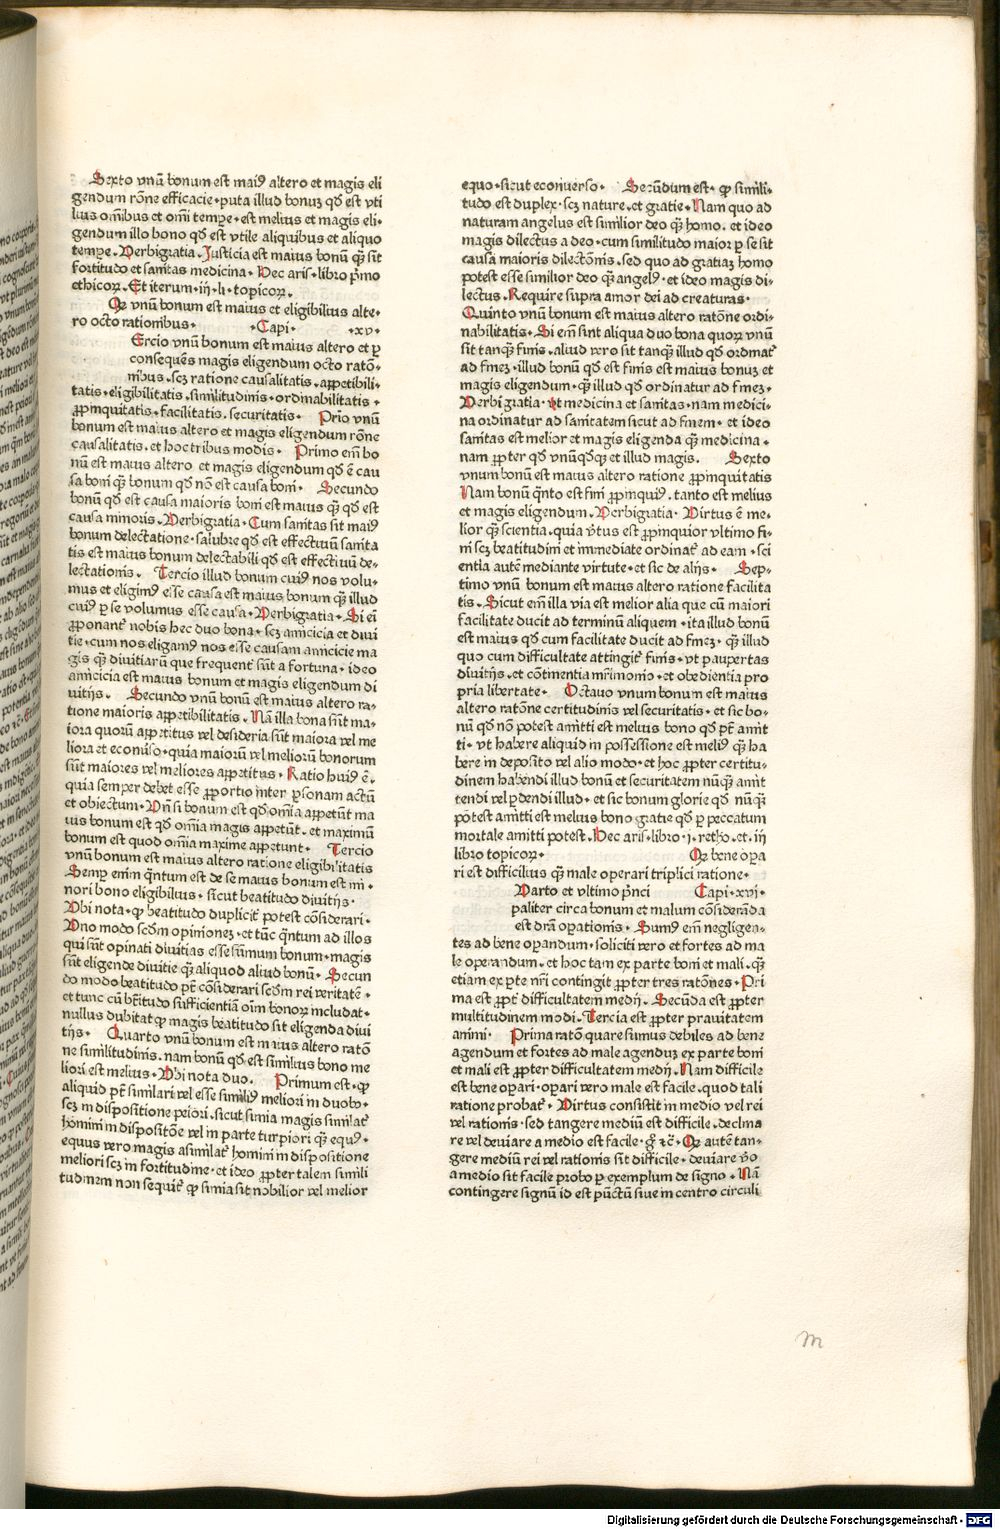 Sexto vnū bonum est maiꝰ altero et magis eli
gendum rōne efficacie · puta illud bonuꝫ qd̄ est vti
lius om̄ibus et om̄i tempe · est melius et magis eli-
gendum illo bono qd̄ est vtile aliquibus et aliquo
tempe · Verbigratia · Justicia est maius bonū q̄ꝫ sit
fortitudo et sanitas medicina · Hec aris · libro p̄mo
ethicoꝝ · Et iterum · iij · li · topicoꝝ ·
Qꝫ vnū bonum est maius et eligibilius alte-
ro octo rationibus · · Capi · · xv ·
Ercio vnū bonum est maius altero et ꝑ
consequēs magis eligendum octo ratō-
nibus · scꝫ ratione causalitatis · appetibili-
tatis · eligibilitatis · similitudinis · ordinabilitatis ·
ꝓpinquitatis · facilitatis · securitatis · Prīo vnū
bonum est maius altero et magis eligendum rōne
causalitatis · et hoc tribus modis · Primo em̄ bo
nū est maius altero et magis eligendum qd̄ ē cau
sa boni q̄ꝫ bonum qd̄ nō est causa boni · Secundo
bonū qd̄ est causa maioris boni est maius q̄ꝫ qd̄ est
causa minoris · Verbigratia · Cum sanitas sit maiꝰ
bonum delectatione · salubre qd̄ est effectiuū sanita
tis est maius bonum delectabili qd̄ est effectiuū de-
lectationis · Tercio illud bonum cuiꝰ nos volu-
mus et eligimꝰ esse causa est maius bonum q̄ꝫ illud
cuiꝰ ꝑ se volumus esse causa · Verbigratia · Si eī
ꝓponant᷑ nobis hec duo bona · scꝫ amicicia et diui
tie · cum nos eligamꝰ nos esse causam amicicie ma
gis q̄ꝫ diuitiarū que frequent᷑ sūt a fortuna · ideo
amicicia est maius bonum et magis eligendum di
uitijs · Secundo vnū bonū est maius altero ra-
tione maioris appetibilitatis · Nā illa bona sūt ma-
iora quorū appetitus vel desideria sūt maiora vel me
liora et econuso · quia maiorū vel meliorū bonorum
sūt maiores vel meliores appetitus · Ratio huiꝰ ē ·
quia semper debet esse ꝓportio inter ꝑsonam actū
et obiectum · Vn̄ si bonum est qd̄ om̄ia appetūt ma
ius bonum est qd̄ om̄ia magis appetūt · et maximū
bonum est quod om̄ia maxime appetunt · Tercio
vnū bonum est maius altero ratione eligibilitatis
Semꝑ enim q̄ntum est de se maius bonum est mi ·
nori bono eligibilius · sicut beatitudo diuitijs ·
Vbi nota · ꝙ beatitudo duplicit᷑ potest cōsiderari ·
Vno modo scd̄m opinionez · et tūc q̄ntum ad illos
qui sūt opinati diuitias esse sūmum bonum · magis
sūt eligende diuitie q̄ꝫ aliquod aliud bonū · Secun
do modo beatitudo pt̄ cōsiderari scd̄m rei veritatē ·
et tunc cū bt̄itudo sufficientiā oīm bonoꝝ includat ·
nullus dubitat ꝙ magis beatitudo sit eligenda diui
tijs · Quarto vnū bonum est maius altero ratō
ne similitudinis · nam bonū qd̄ est similius bono me
liori est melius · Vbi nota duo · Primum est · ꝙ
aliquid pt̄ similari vel esse similiꝰ meliori in duobꝰ ·
scꝫ in dispositione peiori · sicut simia magis similat᷑
homini in dispositōe vel in parte turpiori q̄ꝫ equꝰ ·
equus vero magis asimilat᷑ homini in dispositione
meliori scꝫ in fortitudine · et ideo ꝓpter talem simili
tudinem non sequit᷑ ꝙ simia sit nobilior vel melior
equo · sicut econuerso · Secūdum est · ꝙ simili-
tudo est duplex · scꝫ nature · et gratie · Nam quo ad
naturam angelus est similior deo q̄ꝫ homo · et ideo
magis dilectus a deo · cum similitudo maior ꝑ se sit
causa maioris dilectōnis · sed quo ad gratiaꝫ homo
potest esse similior deo q̄ꝫ angelꝰ · et ideo magis di-
lectus · Require supra amor dei ad creaturas ·
Quinto vnū bonum est maius altero ratōne ordi-
nabilitatis · Si em̄ sint aliqua duo bona quoꝝ vnū
sit tanq̄ꝫ finis · aliud vero sit tanq̄ꝫ illud qd̄ ordinat᷑
ad finez · illud bonū qd̄ est finis est maius bonuꝫ et
magis eligendum · q̄ꝫ illud qd̄ ordinatur ad finez ·
Verbi gratia · vt medicina et sanitas · nam medici-
na ordinatur ad sanitatem sicut ad finem · et ideo
sanitas est melior et magis eligenda q̄ꝫ medicina ·
nam ꝓpter qd̄ vnūqd̄qꝫ et illud magis · Sexto
vnum bonū est maius altero ratione ꝓpinquitatis
Nam bonū q̄nto est fini ꝓpinquiꝰ · tanto est melius
et magis eligendum · Verbigratia · Virtus ē me-
lior q̄ꝫ scientia · quia v̄tus est ꝓpinquior vltimo fi-
ni scꝫ beatitudini et immediate ordinat᷑ ad eam · sci
entia autē mediante virtute · et sic de alijs · Sep-
timo vnū bonum est maius altero ratione facilita
tis · Sicut em̄ illa via est melior alia que cū maiori
facilitate ducit ad terminū aliquem · ita illud bonū
est maius qd̄ cum facilitate ducit ad finez · q̄ꝫ illud
quo cum difficultate attingit᷑ finis · vt paupertas
diuitijs · et cōtinentia mr̄imonio · et obedientia pro
pria libertate · Octauo vnum bonum est maius
altero ratōne certitudinis vel securitatis · et sic bo-
nū qd̄ nō potest amitti est melius bono qd̄ pt̄ amit
ti · vt habere aliquid in possessione est meliꝰ q̄ꝫ ha
bere in deposito vel alio modo · et hoc ꝓpter certitu-
dinem habendi illud bonū et securitatem nūq̄ꝫ amit
tendi vel ꝑdendi illud · et sic bonum glorie qd̄ nūq̄ꝫ
potest amitti est melius bono gratie qd̄ ꝑ peccatum
mortale amitti potest · Hec aris · libro · j · retho · et · iij
libro topicoꝝ · Qꝫ bene oꝑa
ri est difficilius q̄ꝫ male operari triplici ratione ·
Varto et vltimo p̄nci Capi · xvi ·
paliter circa bonum et malum cōsiderāda
est dr̄a oꝑationis · Sumꝰ em̄ negligen-
tes ad bene oꝑandum · soliciti vero et fortes ad ma
le operandum · et hoc tam ex parte boni et mali · q̄ꝫ
etiam ex ꝑte nr̄i contingit ꝓpter tres ratōnes · Pri
ma est ꝓpt᷑ difficultatem medij · Secūda est ꝓpter
multitudinem modi · Tercia est ꝓpter prauitatem
animi · Prima ratō quare sumus debiles ad bene
agendum et fortes ad male agenduꝫ ex parte boni
et mali est ꝓpter difficultatem medij · Nam difficile
est bene oꝑari · oꝑari vero male est facile · quod tali
ratione probat᷑ · Virtus consistit in medio vel rei
vel rationis · sed tangere mediū est difficile · declina
re vel deuiare a medio est facile · g̊ ⁊c̄ · Qꝫ autē tan-
gere mediū rei vel rationis sit difficile · deuiare v̊o
a medio sit facile probo ꝑ exemplum de signo · Nā
contingere signū id est pūctū siue in centro circuli
m
Digitalisierung gefördert durch die Deutsche Forschungsgemeinschaft - DFG